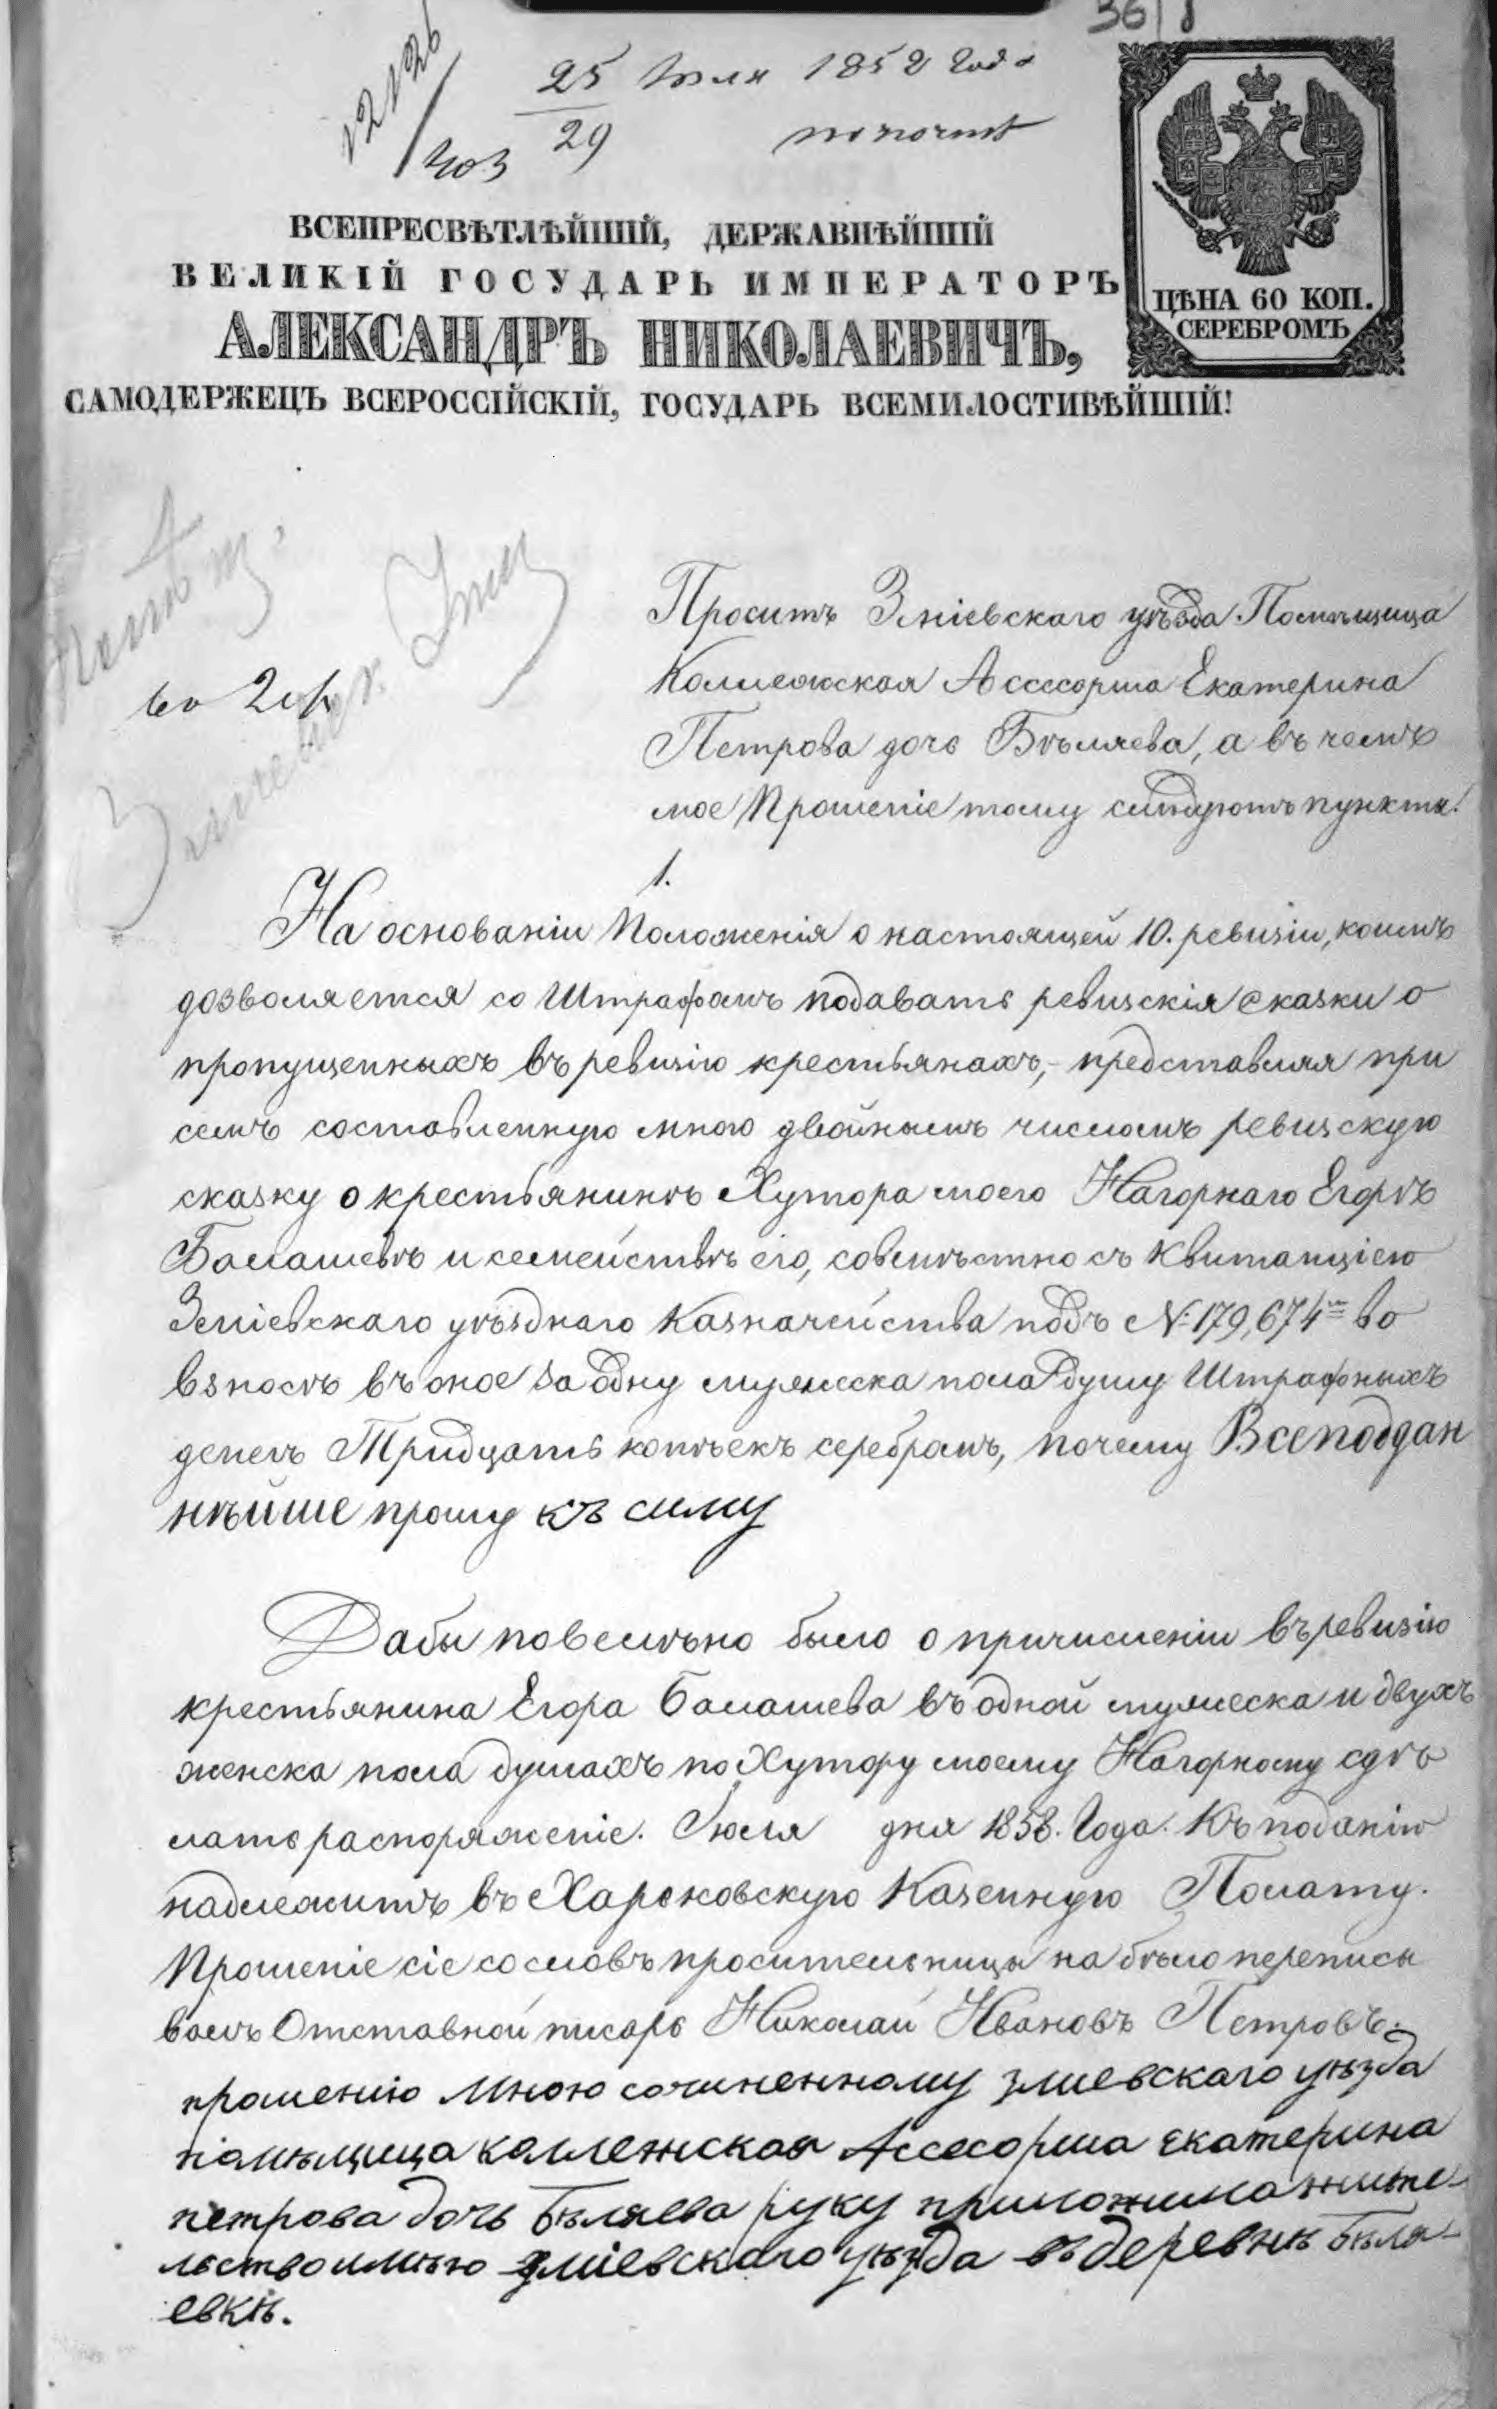 36
12126
403
25 Июля 1858 года
29
по почте
ВСЕПРЕСВѢТЛѢЙШІЙ, ДЕРЖАВНѢЙШІЙ
ВЕЛИКІЙ ГОСУДАРЬ ИМПЕРАТОРЪ
АЛЕКСАНДРЪ НИКОЛАЕВИЧЪ,
САМОДЕРЖЕЦЪ ВСЕРОССІЙСКІЙ, ГОСУДАРЬ ВСЕМИЛОСТИВѢЙШІЙ!
ЦѢНА 60 КОП.
СЕРЕБРОМЪ
Проситъ Зміевскаго уѣзда Помѣщица
Коллежская Ассесорша Екатерина
Петрова дочь Бѣляева, а въ чемъ
мое Прошеніе тому слѣдуютъ пункты:
1.
На основаніи Положенія о настоящей 10. ревизіи, коимъ
дозволяется со Штрафомъ подавать ревизскія сказки о
пропущенныхъ въ ревизію крестьянахъ,- представляя при
семъ составленную мною двойнымъ числомъ ревизскую
сказку о крестьянинѣ Хутора моего Нагорнаго Егорѣ
Балашевѣ и семействѣ его, совмѣстно съ Квитанціею
Зміевскаго уѣзднаго Казначейства подъ № 179,674м во
взносѣ въ оное за одну мужеска пола душу Штрафныхъ
денегъ Тридцать копѣекъ серебромъ, почему Всеподдан
нѣйше прошу къ сему
Дабы повелѣно было о причисленіи въ ревизію
крестьянина Егора Балашева въ одной мужеска и двухъ
женска пола душахъ по Хутору моему Нагорному сдѣ
лать распоряженіе. Іюля дня 1858. Года. Къ поданію
надлежитъ въ Харьковскую Казенную Полату.
Прошеніе сіе со словъ просительницы на бѣло переписы
валъ Отставной писарь Николай Ивановъ Петровъ.
прошенію мною сочиненному змиевскаго уѣзда
памѣщица коллежская Ассесорша екатерина
петрова дочь бѣляева руку приложила жите-
льство имѣю зміевскаго уѣзда въ деревнѣ бѣля-
евкѣ.